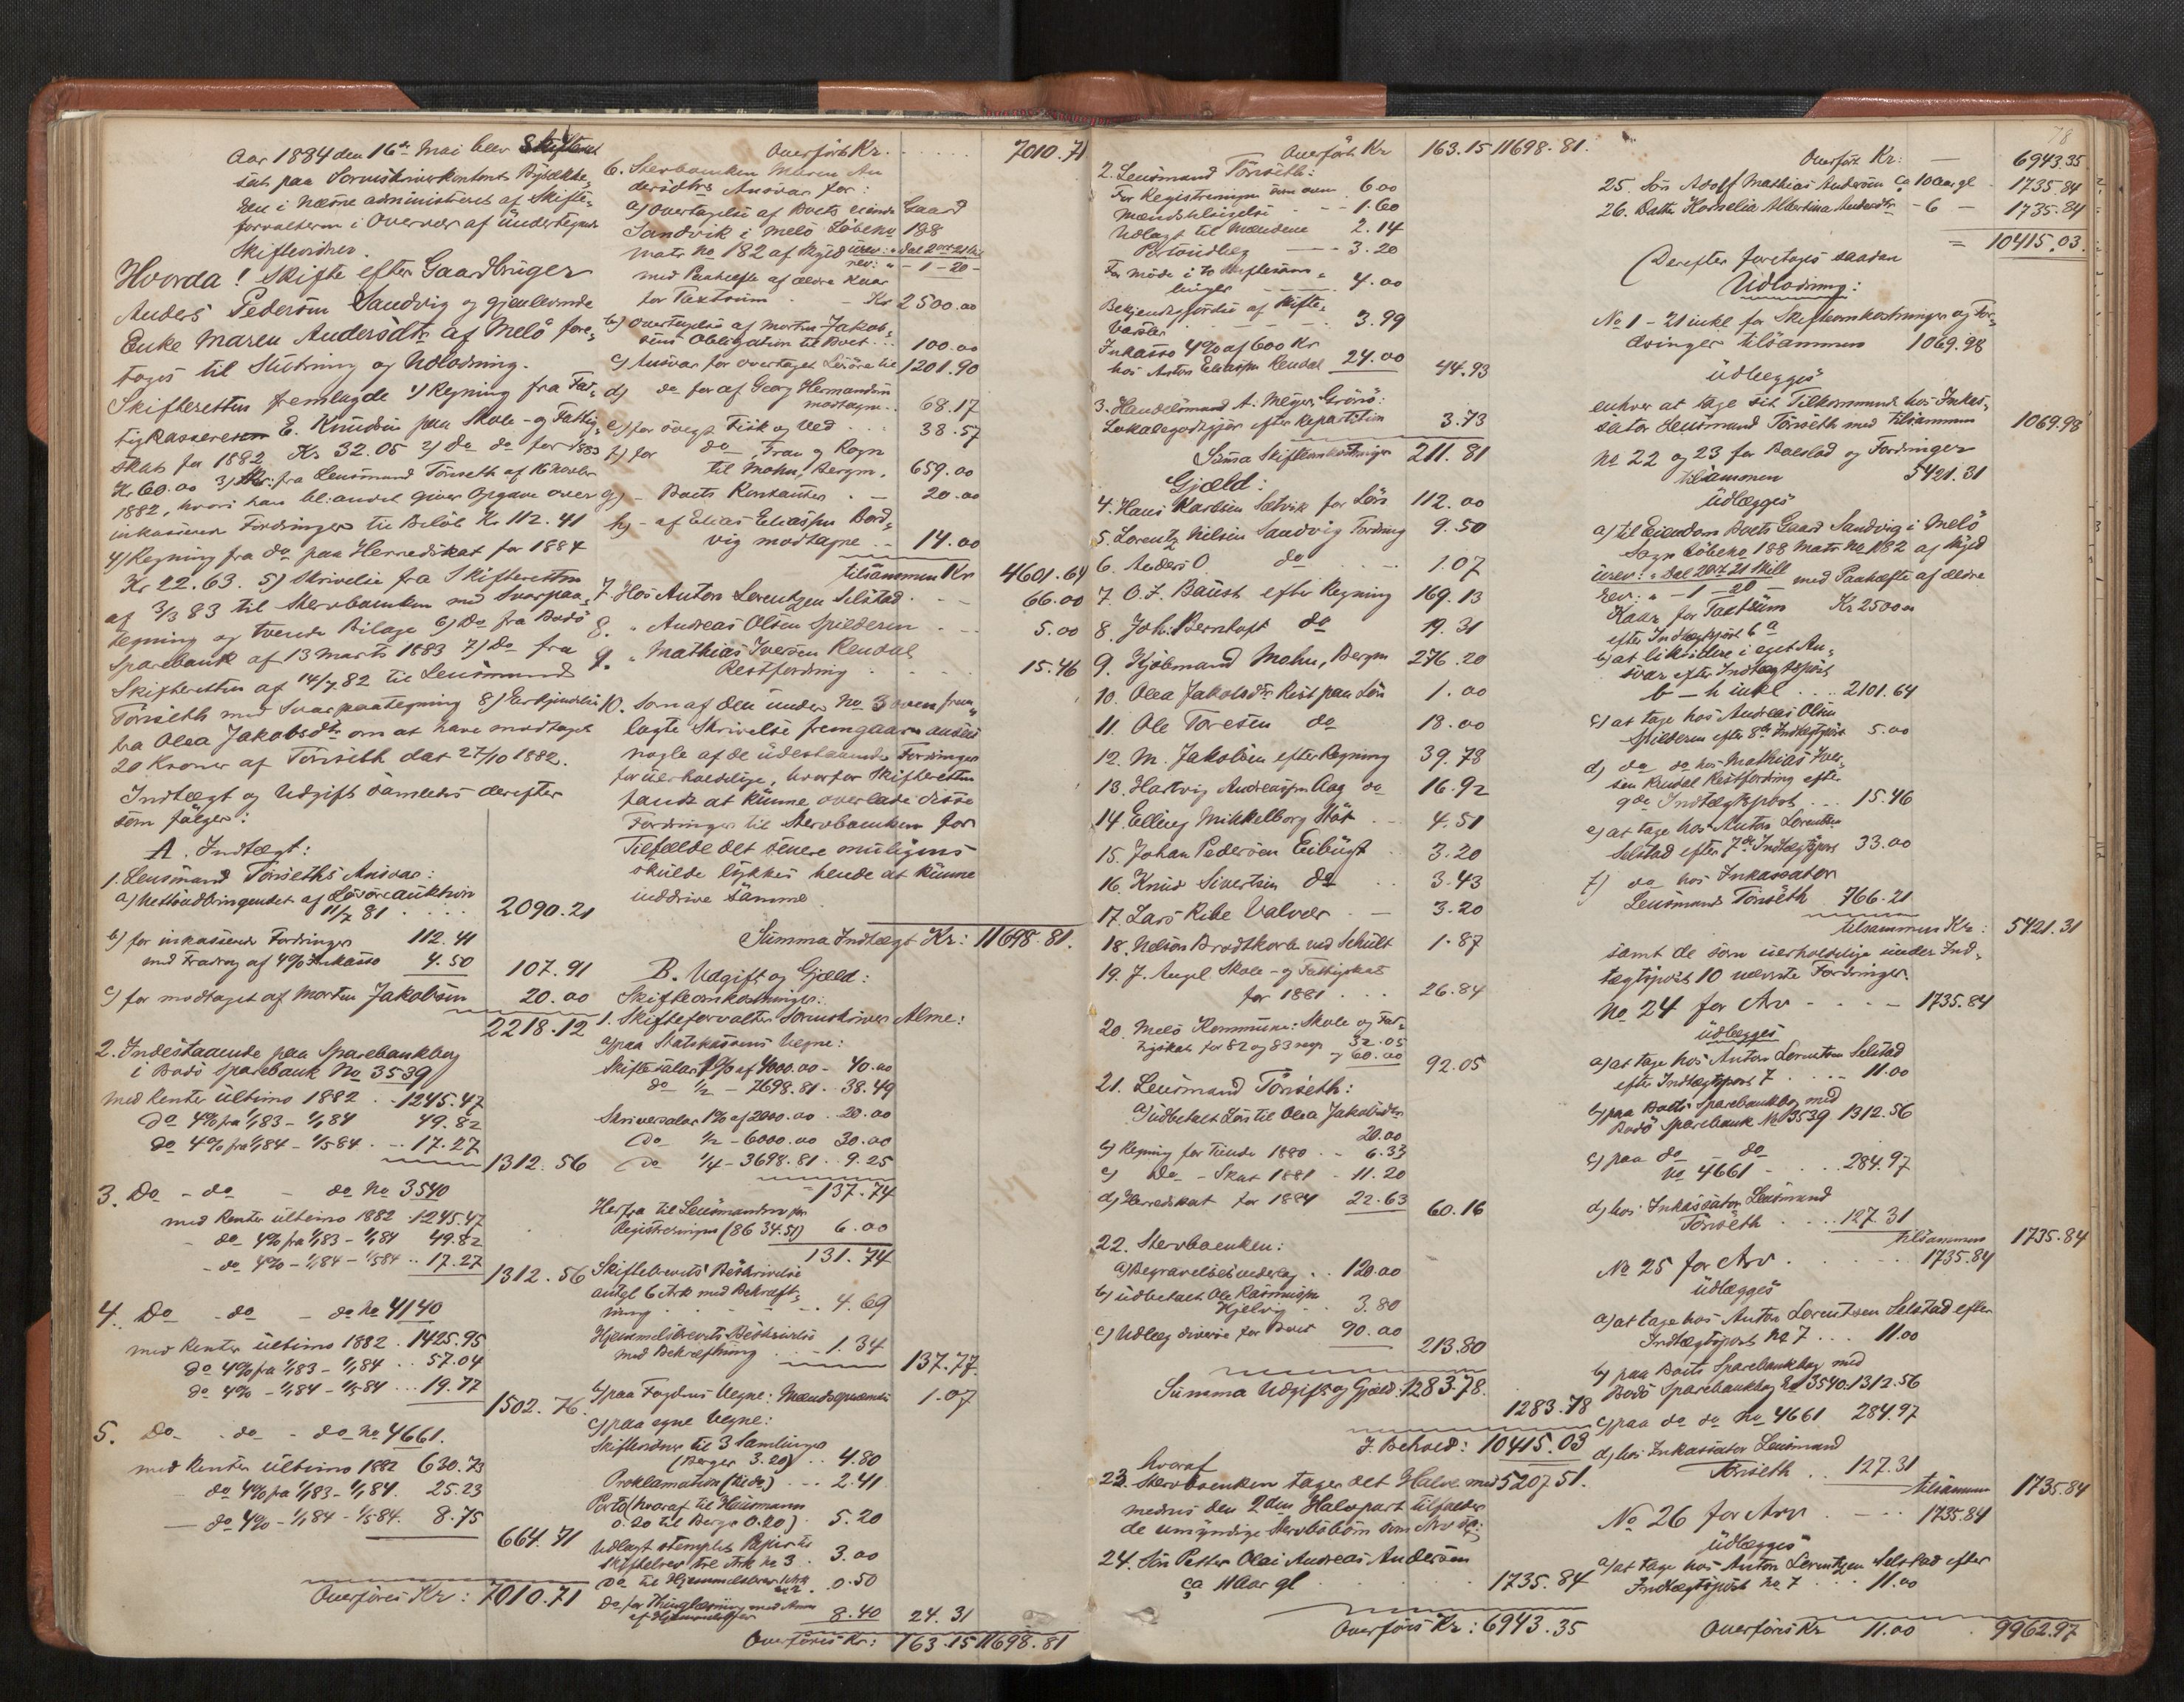 Aar 1884 den 16de Mai blev Skifteret
sat paa Sorenskriverkontoret
den i Næsne administreret af Skifte-
forvalteren i Overvær af undertegnede
Skiftevidner.
Hvorda! Skifte efter Gaardbruger
Anders Pedersen Sandvig og gjenlevende
Enke Maren Andersdtr. af Melö fore-
toges til Slutning og Udlodning.
Skifteretten fremlagde 1) Regning fra Fat-
tigkassereren E. Knudsen paa Skole- og Fattig-
skat for 1882 Kr 32.05 2) Do do for 1883
Kr 60.00 3) Skr. fra Lensmand Tönseth af 16
1882, hvori han bl: andet giver Opgave over
inkasserede Fordringer til Beløb Kr 112.41
4) Regning fra do paa Herredskat for 1884
Kr 22.63. 5) Skrivelse fra Skifteretten
af 3/3 83 til Stervboenken med Svarpaa-
tegning og tvende Bilage 6) Do fra Bodö
Sparebank af 13 Marts 1883 7) Do fra
Skifteretten af 14/7 82 til Lensmand
Tönseth med Svarpaategning 8) Erkjendelse
fra Olea Jakobsdtr om at have modtaget
20 Kroner af Tönseth dat 27/10 1882.
Indtægt og Udgift samledes derefter
som følger:
A. Indtægt:
1. Lensmand Tönseths Ansvar:
a) Nettoudbringendet af Lösöreauktion
11/7 81 .... 2090.21
b) for inkasserede Fordringer 112.41
med Fradrag af 4% Inkasso 4.50 107.91
c) for modtaget af Morten Jakobsen 20.00
2218.12
2. Indestaaende paa Sparebankbog
i Bodö Sparebank No 3539
med Renter ultimo 1882 .. 1245.47
do 4% fra 1/1 83 - 1/1 84 49.82
do 4% fra 1/1 84 - 1/5 84 .. 17.27
1312.56
3. Do - do - do No 3540
med Renter ultimo 1882 . 1245.47
- do 4% fra 1/1 83 - 1/1 84 49.82
- do 4% - 1/1 84 - 1/5 84 .. 17.27
1312.56
4. Do - do - do No 4140
med Renter ultimo 1882 . 1425.95
do 4% fra 1/1 83 - 1/1 84 .. 57.04
do 4% - 1/1 84 - 1/5 84 ... 19.77
1502.76
5. Do - do - do No 4661.
med Renter ultimo 1882 630.73
do 4% fra 1/1 83 - 1/1 84. 25.23
do 4% - 1/1 84 - 1/5 84. 8.75
664.71
Overføres Kr: 7010.71
Overført Kr. .... 7010.71
6. Stervboenken Maren An-
dersdtrs Ansvar for:
a) Overtagelse af Boets eiende Gaard
Sandvik i Melö Löbeno 188
Matr No 182 af Skyld urev: " Dal 2 ort 21 Skil
rev: " - 1 - 20 -
med Paahæfte af ældre Kaar
for Taxtsum - Kr 2500.00
b) Overtagelse af Morten Jakob-
sens Obligation til Boet .. 100.00
c) Ansvar for overtaget Lösöre til 1201.90
d) do for af Georg Hermansen
modtagne .. 68.17
e) for Fisk og Ved ... 38.57
f) for do Tran og Rogn
til Mohn, Bergen, 659.00
g) - Boets Kontanter . - 20.00
h) - af Elias Eliassen Bord-
vig modtagne .. 14.00
tilsammen Kr 4601.64
7. Hos Anton Lorentzen Selstad . - 66.00
8. " Andreas Olsen Spilderen - 5.00
9. " Mathias Iversen Rendal
Restfordring .... 15.46
10. Som af den under No 3 oven frem-
lagte Skrivelse fremgaar ansees
nogle af de udestaaende Fordringer
for uerholdelige, hvorfor Skifteretten
fandt at kunne overlade disse
Fordringer til Stervboenken for
Tilfælde det senere muligens
skulde lykkes hende at kunne
inddrive samme.
Summa Indtægt Kr: 11698.81.
B. Udgift og Gjæld:
Skifteomkostninger:
1. Skifteforvalter Sorenskriver Alme:
a) paa Statskassens Vegne:
Skiftesalar 1% af 4000.00 - 40.00
do 1/2 - 7698.81 .. 38.49
Skriversalar 1% af 2000.00 .. 20.00
Do 1/2 - 6000.00 30.00
do 1/4 - 3698.81 .. 9.25
= 137.74
Herfra til Lensmanden for
Registreringen (86 34.51) 6.00
131.74
Skiftebrevets Beskrivelse
antgl 6 Ark med Bekræft-
ning .... 4.69
Hjemmelsbrevets Beskrivelse
med Bekræftning ... 1.34
137.77
b) paa Fogdens Vegne: 1.07
c) paa egne Vegne:
Skiftevidner til 3 Samlinger
(Berger 3.20) .. 4.80
Proklamation (Tiende) - ... 2.41
Porto (hvoraf til
0.20 til Berger 0.20) . 5.20
Udlagt stemplet Papir til
Skiftebrev til Ark No 3 . 3.00
Do til Hjemmelsbrev 1 Ark
No 2 . 0.50
Do for Thinglæsning med
af Hjemmelsbrev 8.40 24.31
Overføres Kr: 163.15 11698.81
Overført Kr 163.15 11698.81.
2. Lensmand Tönseth:
For Registreringen som oven 6.00
- - 1.60
Udlagt til Mændene 2.14
Portoudlæg - - - 3.20
For Møde i to Skiftesam-
linger ---- 4.00
Bekjendtgjørelse af Skifte-
.... 3.99
Inkasso 4% af 600 Kr
hos Anton Eliassen Rendal 24.00 44.93
3. Handelsmand A. Meyer, Grönö:
Lokalegodtgjør. efter Repartition 3.73
Summa Skifteomkostninger 211.81
Gjæld:
4. Hans Karlsen Satvik for Løn 112.00
5. Lorentz Nilsen Sandvig Fordring 9.50
6. Anders O. do ... 1.07
7. O. J. Baust efter Regning 169.13
8. Joh. Bernhoft do 19.31
9. Kjöbmand Mohn, Bergen 276.20
10. Olea Jakobsdtr Rest paa Løn 1.00
11. Ole Toresen do 13.00
12. M. Jakobsen efter Regning 39.78
13. Hartvig Andreassen Aag do 16.92
14. Elling Mikkelborg Støt .. 4.51
15. Johan Pedersen Eibugt .. 3.20
16. Knud Sivertsen do .. 3.43
17. Lars Ribe Valvær . - 3.20
18. Nelson Brodtkorb ved Schült 1.87
19. J. Angel Skole- og Fattigskat
for 1881 ... 26.84
20. Melö Kommune: Skole og Fat-
tigskat for 82 og 83 resp 32.05
og 60.00 92.05
21. Lensmand Tönseth:
a) udbetalt Løn til Olea Jakobsdtr
20.00
b) Regning for Tiende 1880 .. 6.33
c) Do - Skat 1881 - 11.20
d) Herredskat for 1884 22.63 60.16
22. Stervboenken:
a) Begravelsesvederlag .. 120.00
b) udbetalt Ole Rasmussen
Hjelvig .. 3.80
c) Udlæg diverse for Boet 90.00
213.80
Summa Udgift og Gjæld: 1283.78.
1283.78
I Behold: 10415.03
hvoraf
23. Stervboenken tager det Halve med 5207.51.
medens den 2den Halvpart tilfalder
de umyndige Stervbobørn som Arv
24. Søn Peder Olai Andreas Andersen
ca 11 Aar gl ... 1735.84
Overføres Kr: 6943.35
78
Overført Kr: - 6943.35
25. Søn Adolf Mathias Andersen ca 10 Aar gl - 1735.84
26. Datter Kornelia Albertina Andersdtr - 6 - 1735.84
= 10415.03.
Derefter foretoges saadan
Udlodning:
No 1 - 21 inkl for Skifteomkostninger og For-
dringer tilsammen 1069.98
udlægges
enhver at tage sit Tilkommende hos Inkas-
sator Lensmand Tönseth med tilsammen 1069.98
No 22 og 23 for Boeslod og Fordringer
tilsammen 5421.31
udlægges
a) til Eiendom Boets Gaard Sandvig i Melö
Sogn Löbeno 188 Matr No 182 af Skyld
urev: " Dal 2 ort 21 Skill
rev: " - 1 - 20 - med Paahæfte af ældre
Kaar for Taxtsum Kr 2500.00
efter Indtægtspost 6 a
b) at likvidere i eget An-
svar efter Indtægtspost
b - h inkl .... 2101.64
c) at tage hos Andreas Olsen
Spilderen efter 8de Indtægtspost 5.00
d) do do hos Mathias Iver-
sen Rendal Restfordring efter
9de Indtægtspost ... 15.46
e) at tage hos Anton Lorentzen
Selstad efter 7de Indtægtspost 33.00
f) do hos Inkassator
Lensmand Tönseth 766.21
tilsammen Kr: 5421.31
samt de som uerholdelige under Ind-
tægtspost 10 nævnte Fordringer.
No 24 for Arv - - - - 1735.84
udlægges
a) at tage hos Anton Lorentzen Selstad
efter Indtægtspost 7 .... 11.00
b) paa Boets Sparebankbog med
Bodö Sparebank No 3539 1312.56
c) paa do - do
No 4661 - ... 284.97
d) hos Inkassator Lensmand
Tönseth .... 127.31
tilsammen 1735.84
No 25 for Arv .... 1735.84
udlægges
a) at tage hos Anton Lorentzen Selstad efter
Indtægtspost No 7 ... 11.00
b) paa Boets Sparebankbog med
Bodö Sparebankbog No 3540. 1312.56
c) paa do do No 4661 284.97
d) hos Inkassator Lensmand
Tönseth .. 127.31
tilsammen 1735.84
No 26 for Arv .--- 1735.84
udlægges
a) at tage hos Anton Lorentzen Selstad efter
Indtægtspost No 7 ... 11.00
Overføres Kr 11.00 . 9962.97